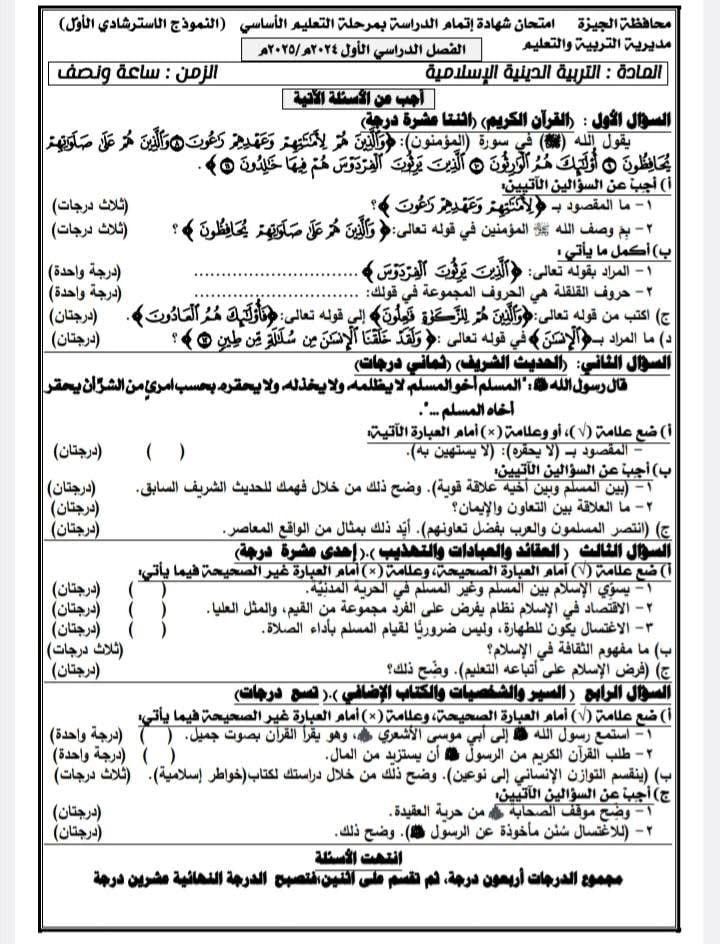 محافظة الجيزة امتحان شهادة إتمام الدراسة بمرحلة التعليم الأساسي (النموذج الاسترشادي الأول)
مديرية التربية والتعليم الفصل الدراسي الأول ٢٠٢٤م/٢٠٢٥م
المادة : التربية الدينية الإسلامية الزمن : ساعة ونصف
أجب عن الأسئلة الآتية
السؤال الأول : (القرآن الكريم) (اثنتا عشرة درجة)
يقول الله (ﷻ) في سورة (المؤمنون): ﴿وَٱلَّذِينَ هُمْ لِأَمَٰنَٰتِهِمْ وَعَهْدِهِمْ رَٰعُونَ ٨ وَٱلَّذِينَ هُمْ عَلَىٰ صَلَوَٰتِهِمْ
يُحَافِظُونَ ٩ أُو۟لَٰٓئِكَ هُمُ ٱلْوَٰرِثُونَ ١٠ ٱلَّذِينَ يَرِثُونَ ٱلْفِرْدَوْسَ هُمْ فِيهَا خَٰلِدُونَ ١١﴾.
أ) أجب عن السؤالين الآتيين:
١- ما المقصود بـ ﴿لِأَمَٰنَٰتِهِمْ وَعَهْدِهِمْ رَٰعُونَ﴾؟ (ثلاث درجات)
٢- بم وصف الله ﷻ المؤمنين في قوله تعالى: ﴿وَٱلَّذِينَ هُمْ عَلَىٰ صَلَوَٰتِهِمْ يُحَافِظُونَ﴾؟ (ثلاث درجات)
ب) أكمل ما يأتي :
١- المراد بقوله تعالى: ﴿ٱلَّذِينَ يَرِثُونَ ٱلْفِرْدَوْسَ﴾ .................................. (درجة واحدة)
٢- حروف القلقلة هي الحروف المجموعة في قولك: .................................. (درجة واحدة)
ج) اكتب من قوله تعالى: ﴿وَٱلَّذِينَ هُمْ لِلزَّكَوٰةِ فَٰعِلُونَ﴾ إلى قوله تعالى: ﴿فَأُو۟لَٰٓئِكَ هُمُ ٱلْعَادُونَ﴾. (درجتان)
د) ما المراد بـ ﴿ٱلْإِنسَٰنَ﴾ في قوله تعالى : ﴿وَلَقَدْ خَلَقْنَا ٱلْإِنسَٰنَ مِن سُلَٰلَةٍ مِّن طِينٍ ١٢﴾؟ (درجتان)
السؤال الثاني: (الحديث الشريف) (ثماني درجات)
قال رسول الله ﷺ: "المسلم أخو المسلم، لا يظلمه، ولا يخذله، ولا يحقره، بحسب امرئ من الشر أن يحقر
أخاه المسلم ...".
أ) ضع علامة (√)، أو وعلامة (×) أمام العبارة الآتية:
- المقصود بـ (لا يحقره): (لا يستهين به). ( ) (درجتان)
ب) أجب عن السؤالين الآتيين:
١- (بين المسلم وبين أخيه علاقة قوية). وضح ذلك من خلال فهمك للحديث الشريف السابق. (درجتان)
٢- ما العلاقة بين التعاون والإيمان؟ (درجتان)
ج) (انتصر المسلمون والعرب بفضل تعاونهم). أيّد ذلك بمثال من الواقع المعاصر. (درجتان)
السؤال الثالث ( العقائد والعبادات والتهذيب ).( إحدى عشرة درجة)
أ) ضع علامة (√) أمام العبارة الصحيحة، وعلامة (×) أمام العبارة غير الصحيحة فيما يأتي:
١- يسوّي الإسلام بين المسلم وغير المسلم في الحرية المدنيّة. ( ) (درجتان)
٢- الاقتصاد في الإسلام نظام يفرض على الفرد مجموعة من القيم، والمثل العليا. ( ) (درجتان)
٣- الاغتسال يكون للطهارة، وليس ضروريًّا لقيام المسلم بأداء الصلاة. ( ) (درجتان)
ب) ما مفهوم الثقافة في الإسلام؟ (ثلاث درجات)
ج) (فرض الإسلام على أتباعه التعليم). وضّح ذلك؟ (درجتان)
السؤال الرابع ( السير والشخصيات والكتاب الإضافي ).( تسع درجات)
أ) ضع علامة (√) أمام العبارة الصحيحة، وعلامة (×) أمام العبارة غير الصحيحة فيما يأتي:
١- استمع رسول الله ﷺ إلى أبي موسى الأشعري ؓ، وهو يقرأ القرآن بصوت جميل. ( ) (درجة واحدة)
٢- طلب القرآن الكريم من الرسول ﷺ أن يستزيد من المال. ( ) (درجة واحدة)
ب) (ينقسم التوازن الإنساني إلى نوعين). وضح ذلك من خلال دراستك لكتاب(خواطر إسلامية). (ثلاث درجات)
ج) أجب عن السؤالين الآتيين:
١- وضح موقف الصحابة ؓ من حرية العقيدة. (درجتان)
٢- (للاغتسال سُنن مأخوذة عن الرسول ﷺ). وضح ذلك. (درجتان)
انتهت الأسئلة
مجموع الدرجات أربعون درجة، ثم تقسم على اثنين،فتصبح الدرجة النهائية عشرين درجة